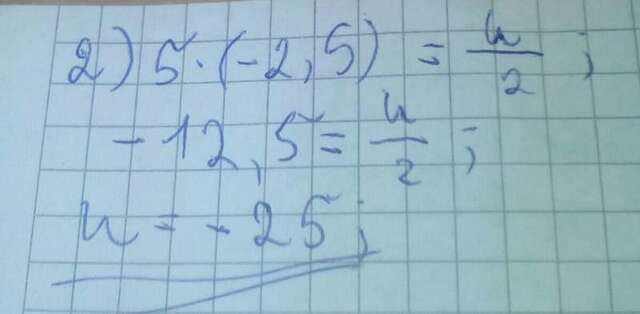 2) 5 · (-2,5) = u/2 ;
-12,5 = u/2 ;
u = -25;